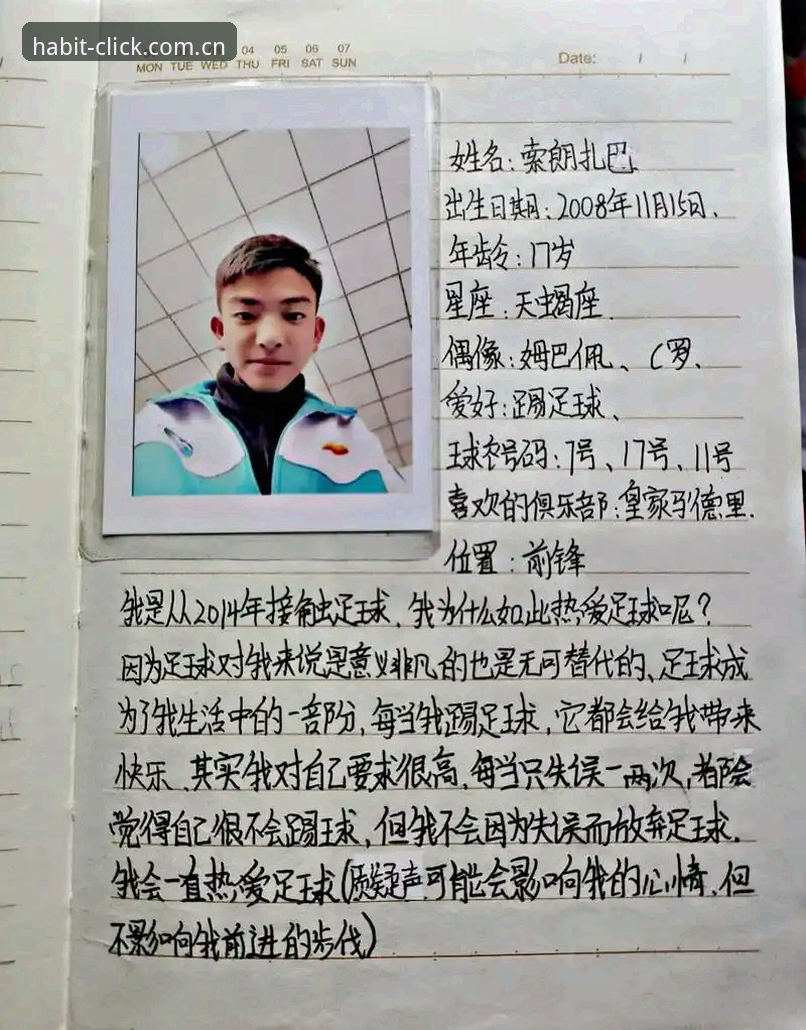 habit-click.com.cn
04 05 06 07
MON TUE WED THU FRI SAT SUN
Date: / /
姓名:索朗扎巴
出生日期:2008年11月15日.
年龄:17岁
星座:天蝎座.
偶像:姆巴佩、C罗.
爱好:踢足球、
球衣号码:7号、17号、11号
喜欢的俱乐部:皇家马德里.
位置:前锋
我是从2014年接触足球,我为什么如此热爱足球呢?
因为足球对我来说是意义非凡的也是无可替代的、足球成
为了我生活中的一部分,每当我踢足球,它都会给我带来
快乐.其实我对自己要求很高,每当只失误一两次,都会
觉得自己很不会踢球,但我不会因为失误而放弃足球.
我会一直热爱足球(质疑声可能会影响我的心情,但
不影响我前进的步伐)